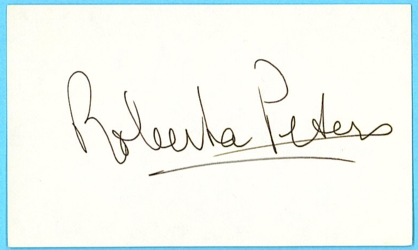 Roberta Peters